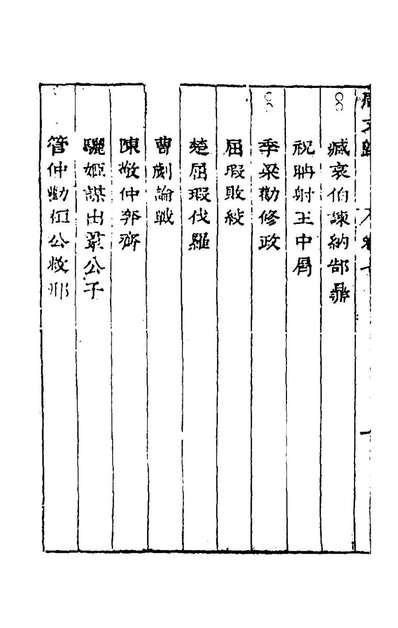 臧哀伯諫納郜鼎
祝聃射王中肩
季梁勸修政
屈瑕敗絞
楚屈瑕伐羅
曹劌論戰
陳敬仲奔齊
驪姬謀出羣公子
管仲勸桓公救邢